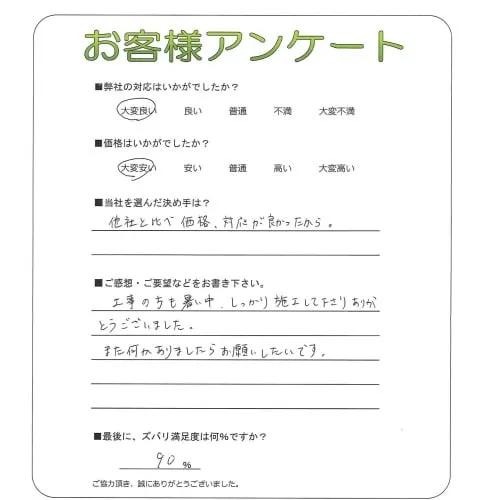 お客様アンケート
■弊社の対応はいかがでしたか？
大変良い 良い 普通 不満 大変不満
■価格はいかがでしたか？
大変安い 安い 普通 高い 大変高い
■当社を選んだ決め手は？
他社と比べ価格、対応が良かったから。
■ご感想・ご要望などをお書き下さい。
工事の方も暑い中、しっかり施工して下さりありが
とうございました。
また何かありましたらお願いしたいです。
■最後に、ズバリ満足度は何％ですか？
90 ％
ご協力頂き、誠にありがとうございました。